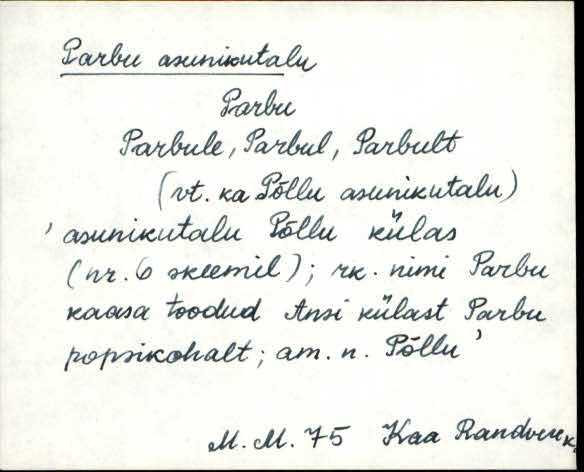 Parbu asunikutalu
Parbu
Parbule, Parbul, Parbult
(vt. ka Põllu asunikutalu)
' asunikutalu Põllu külas
(nr. 6 skeemil); rk. nimi Parbu
kaasa toodud Ansi külast Parbu
popsikohalt; am. n. Põllu '
M. M. 75 Kaa Randvere k.